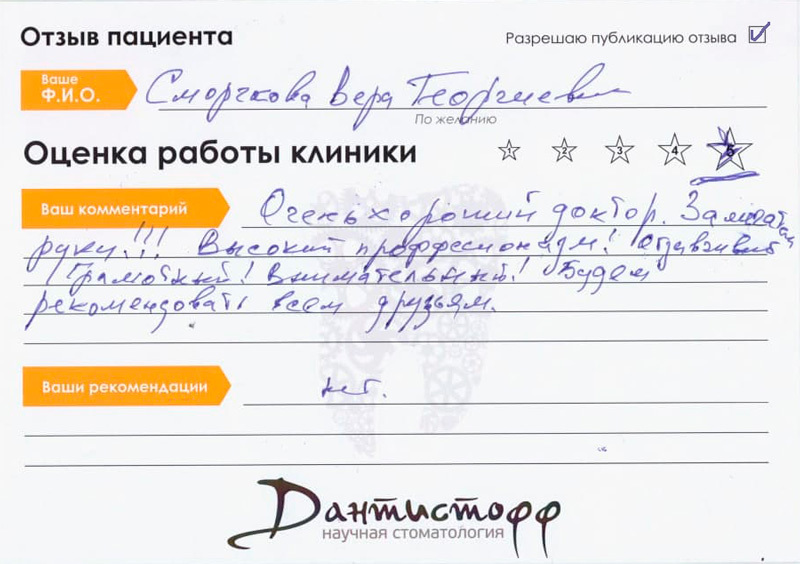 Отзыв пациента
Разрешаю публикацию отзыва
Ваше Ф.И.О.
Сморчкова Вера Георгиевна
По желанию
Оценка работы клиники 1 2 3 4 5
Ваш комментарий Очень хороший доктор. Золотая
руки!!! Высокий профессионализм! Отзывчивый
Грамотный! Внимательный! Будем
рекомендовать всем друзьям.
Ваши рекомендации нет.
Дантистофф
научная стоматология